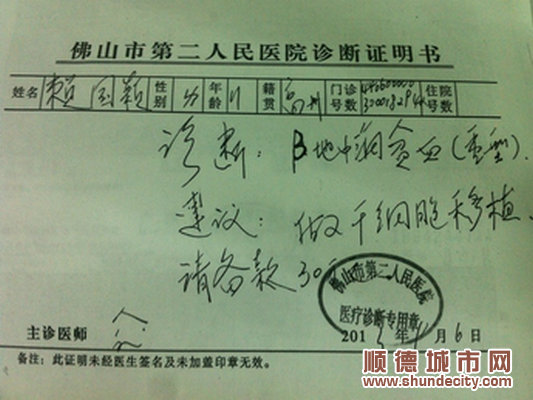 佛山市第二人民医院诊断证明书
姓名 赖国颖 性别 女 年龄 11 籍贯 高州 门诊号数 住院号数
诊断：β地中海贫血（重型）.
建议：做干细胞移植.
请备款30
佛山市第二人民医院
医疗诊断专用章
主诊医师 201 年 月 6 日
备注：此证明未经医生签名及未加盖印章无效。
顺德城市网
www.shundecity.com